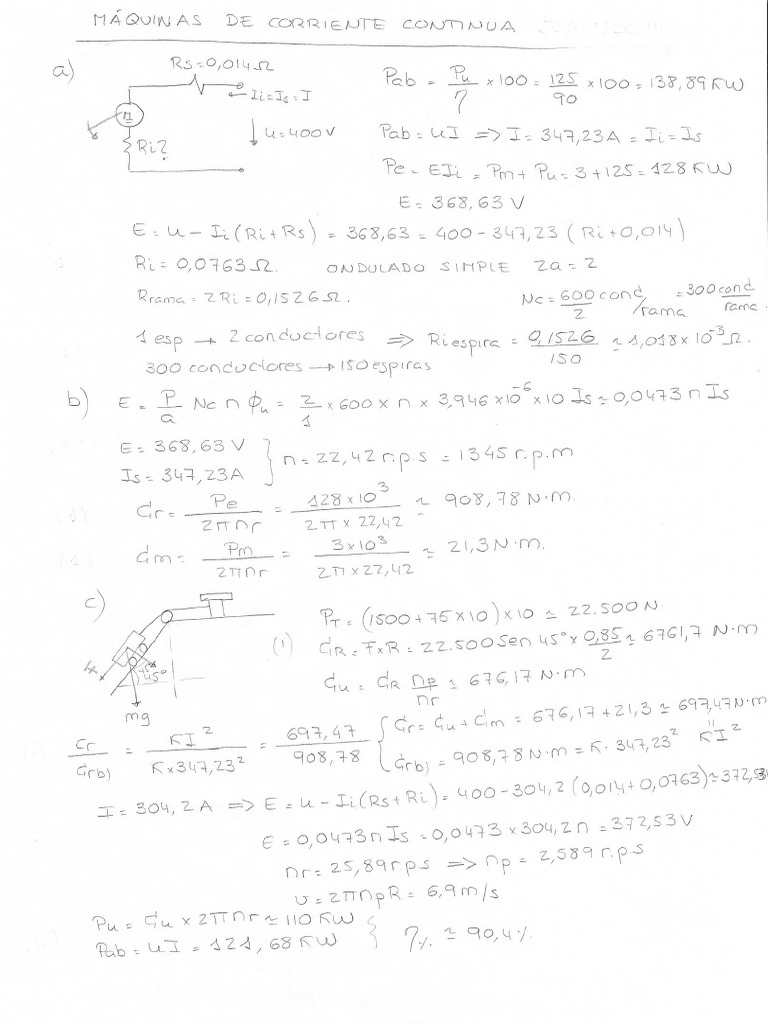 MÁQUINAS DE CORRIENTE CONTINUA
a)
Rs=0,014Ω
Ii=Is=I
U=400V
Ri?
Pab = Pu/η × 100 = 125/90 × 100 = 138,89 KW
Pab = UI => I = 347,23A = Ii = Is
Pe = EIi = Pm + Pu = 3 + 125 = 128 KW
E = 368,63 V
E = U - Ii(Ri+Rs) = 368,63 = 400 - 347,23 (Ri+0,014)
Ri = 0,0763Ω. ONDULADO SIMPLE 2a = 2
Rrama = 2Ri = 0,1526Ω. Nc = 600/2 cond/rama = 300 cond/rama
1 esp → 2 conductores => Riespira = 0,1526/150 ≃ 1,018×10⁻³Ω.
300 conductores → 150 espiras
b) E = P/a Nc n Φu = 2/1 × 600 × n × 3,946×10⁻⁶×10 Is ≃ 0,0473 n Is
E = 368,63 V
Is = 347,23A } n = 22,42 r.p.s = 1345 r.p.m
Cr = Pe/2πnr = 128×10³/2π×22,42 ≃ 908,78 N·m.
Cm = Pm/2πnr = 3×10³/2π×22,42 ≃ 21,3 N·m.
c)
45°
mg
PT = (1500+75×10)×10 ≃ 22.500 N
(1) CR = F×R = 22.500 sen 45°× 0,85/2 ≃ 6761,7 N·m
Cu = CR np/nr ≃ 676,17 N·m
Cr/Crb) = KI²/K×347,23² = 697,47/908,78 { Cr = Cu + Cm = 676,17+21,3 ≃ 697,47 N·m
" KI²
Crb) = 908,78 N·m = K· 347,23²
I = 304,2 A => E = U - Ii(Rs+Ri) = 400 - 304,2 (0,014+0,0763) ≃ 372,53
E = 0,0473 n Is = 0,0473 × 304,2 n = 372,53 V
nr = 25,89 r.p.s => np = 2,589 r.p.s
v = 2πnpR = 6,9 m/s
Pu = Cu × 2πnr ≃ 110 KW
Pab = UI = 121,68 KW } η% ≃ 90,4%